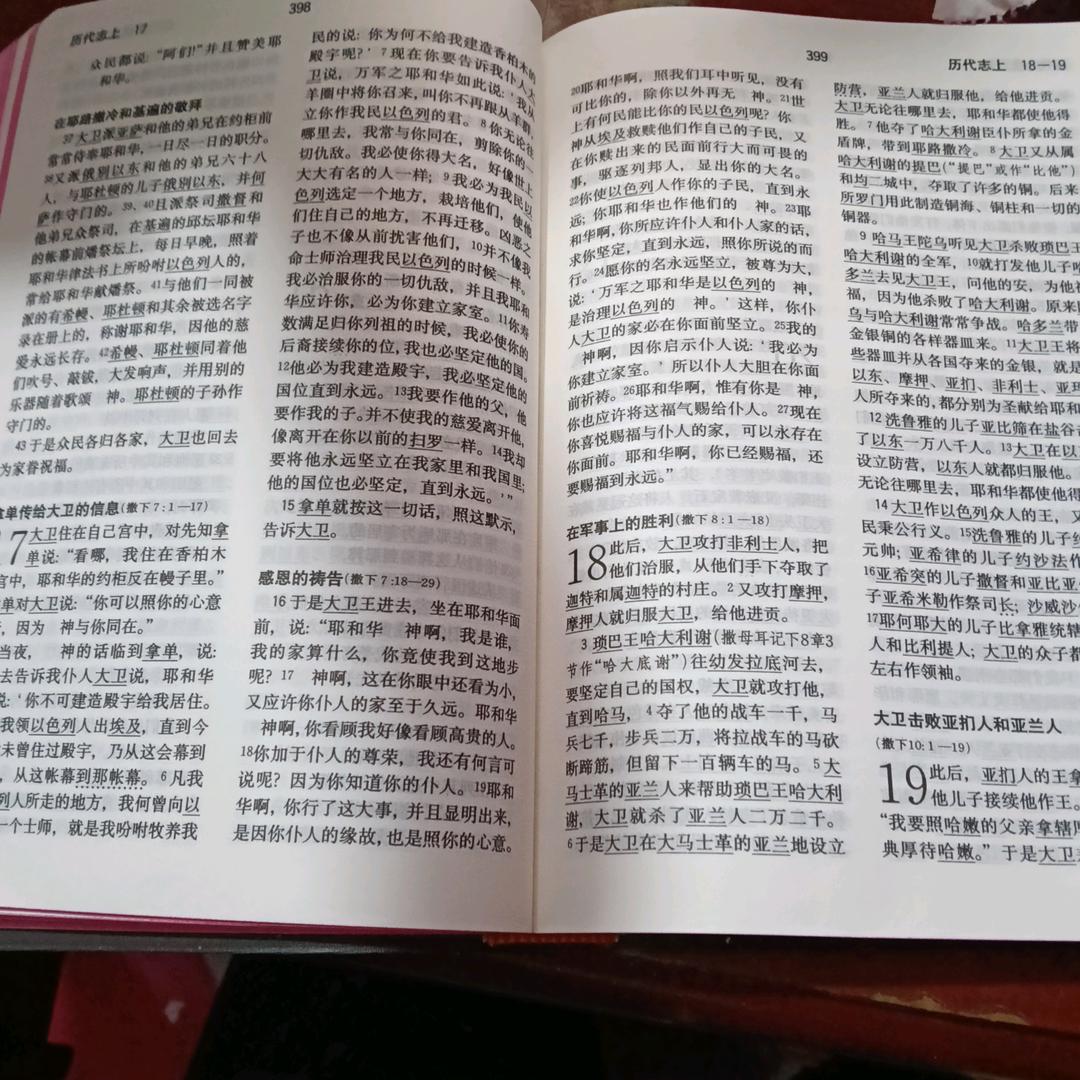 398
历代志上 17
众民都说：“阿们！”并且赞美耶
和华。
在耶路撒冷和基遍的敬拜
37 大卫派亚萨和他的弟兄在约柜前
常常侍奉耶和华，一日尽一日的职分。
38又派俄别以东和他的弟兄六十八
人，与耶杜顿的儿子俄别以东，并何
萨作守门的。39、40且派祭司撒督和
他弟兄众祭司，在基遍的邱坛耶和华
的帐幕前燔祭坛上，每日早晚，照着
耶和华律法书上所吩咐以色列人的，
常给耶和华献燔祭。41与他们一同被
派的有希幔、耶杜顿和其余被选名字
录在册上的，称谢耶和华，因他的慈
爱永远长存。42希幔、耶杜顿同着他
们吹号、敲钹，大发响声，并用别的
乐器随着歌颂 神。耶杜顿的子孙作
守门的。
43 于是众民各归各家，大卫也回去
为家眷祝福。
拿单传给大卫的信息（撒下7：1—17）
7大卫住在自己宫中，对先知拿
单说：“看哪，我住在香柏木
宫中，耶和华的约柜反在幔子里。”
单对大卫说：“你可以照你的心意
，因为 神与你同在。”
当夜， 神的话临到拿单，说：
去告诉我仆人大卫说，耶和华
说：‘你不可建造殿宇给我居住。
我领以色列人出埃及，直到今
未曾住过殿宇，乃从这会幕到
，从这帐幕到那帐幕。6凡我
列人所走的地方，我何曾向以
一个士师，就是我吩咐牧养我
民的说：你为何不给我建造香柏木的
殿宇呢？’7现在你要告诉我仆人大
卫说，万军之耶和华如此说：‘我从
羊圈中将你召来，叫你不再跟从羊群，
立你作我民以色列的君。8你无论往
哪里去，我常与你同在，剪除你的一
切仇敌。我必使你得大名，好像世上
大大有名的人一样；9我必为我民以
色列选定一个地方，栽培他们，使他
们住自己的地方，不再迁移。凶恶之
子也不像从前扰害他们，10并不像我
命士师治理我民以色列的时候一样。
我必治服你的一切仇敌，并且我耶和
华应许你，必为你建立家室。11你寿
数满足归你列祖的时候，我必使你的
后裔接续你的位，我也必坚定他的国。
12他必为我建造殿宇，我必坚定他的
国位直到永远。13我要作他的父，他
要作我的子。并不使我的慈爱离开他，
像离开在你以前的扫罗一样。14我却
要将他永远坚立在我家里和我国里；
他的国位也必坚定，直到永远。’”
15 拿单就按这一切话，照这默示，
告诉大卫。
感恩的祷告（撒下7：18—29）
16 于是大卫王进去，坐在耶和华面
前，说：“耶和华 神啊，我是谁，
我的家算什么，你竟使我到这地步
呢？17 神啊，这在你眼中还看为小，
又应许你仆人的家至于久远。耶和华
神啊，你看顾我好像看顾高贵的人。
18你加于仆人的尊荣，我还有何言可
说呢？因为你知道你的仆人。19耶和
华啊，你行了这大事，并且显明出来，
是因你仆人的缘故，也是照你的心意。
399
历代志上 18—19
20耶和华啊，照我们耳中听见，没有
可比你的，除你以外再无 神。21世
上有何民能比你的民以色列呢？你
神从埃及救赎他们作自己的子民，又
在你赎出来的民面前行大而可畏的
事，驱逐列邦人，显出你的大名。
22你使以色列人作你的子民，直到永
远；你耶和华也作他们的 神。23耶
和华啊，你所应许仆人和仆人家的话，
求你坚定，直到永远，照你所说的而
行。24愿你的名永远坚立，被尊为大，
说：‘万军之耶和华是以色列的 神，
是治理以色列的 神。’这样，你仆
人大卫的家必在你面前坚立。25我的
神啊，因你启示仆人说：‘我必为
你建立家室。’所以仆人大胆在你面
前祈祷。26耶和华啊，惟有你是 神，
你也应许将这福气赐给仆人。27现在
你喜悦赐福与仆人的家，可以永存在
你面前。耶和华啊，你已经赐福，还
要赐福到永远。”
在军事上的胜利（撒下8：1—18）
18此后，大卫攻打非利士人，把
他们治服，从他们手下夺取了
迦特和属迦特的村庄。2又攻打摩押，
摩押人就归服大卫，给他进贡。
3 琐巴王哈大利谢（撒母耳记下8章3
节作“哈大底谢”）往幼发拉底河去，
要坚定自己的国权，大卫就攻打他，
直到哈马，4夺了他的战车一千，马
兵七千，步兵二万，将拉战车的马砍
断蹄筋，但留下一百辆车的马。5大
马士革的亚兰人来帮助琐巴王哈大利
谢，大卫就杀了亚兰人二万二千。
6于是大卫在大马士革的亚兰地设立
防营，亚兰人就归服他，给他进贡。
大卫无论往哪里去，耶和华都使他得
胜。7他夺了哈大利谢臣仆所拿的金
盾牌，带到耶路撒冷。8大卫又从属
哈大利谢的提巴（“提巴”或作“比他”）
和均二城中，夺取了许多的铜。后来
所罗门用此制造铜海、铜柱和一切的
铜器。
9 哈马王陀乌听见大卫杀败琐巴王
哈大利谢的全军，10就打发他儿子哈
多兰去见大卫王，问他的安，为他祝
福，因为他杀败了哈大利谢。原来陀
乌与哈大利谢常常争战。哈多兰带
金银铜的各样器皿来。11大卫王将
些器皿并从各国夺来的金银，就是
以东、摩押、亚扪、非利士、亚玛
人所夺来的，都分别为圣献给耶和
12 洗鲁雅的儿子亚比筛在盐谷
了以东一万八千人。13大卫在以
设立防营，以东人就都归服他。
无论往哪里去，耶和华都使他得
14 大卫作以色列众人的王，又
民秉公行义。15洗鲁雅的儿子约
元帅；亚希律的儿子约沙法作
16亚希突的儿子撒督和亚比亚
子亚希米勒作祭司长；沙威沙
17耶何耶大的儿子比拿雅统辖
人和比利提人；大卫的众子都
左右作领袖。
大卫击败亚扪人和亚兰人
（撒下10：1—19）
19此后，亚扪人的王拿
他儿子接续他作王。
“我要照哈嫩的父亲拿辖
典厚待哈嫩。”于是大卫